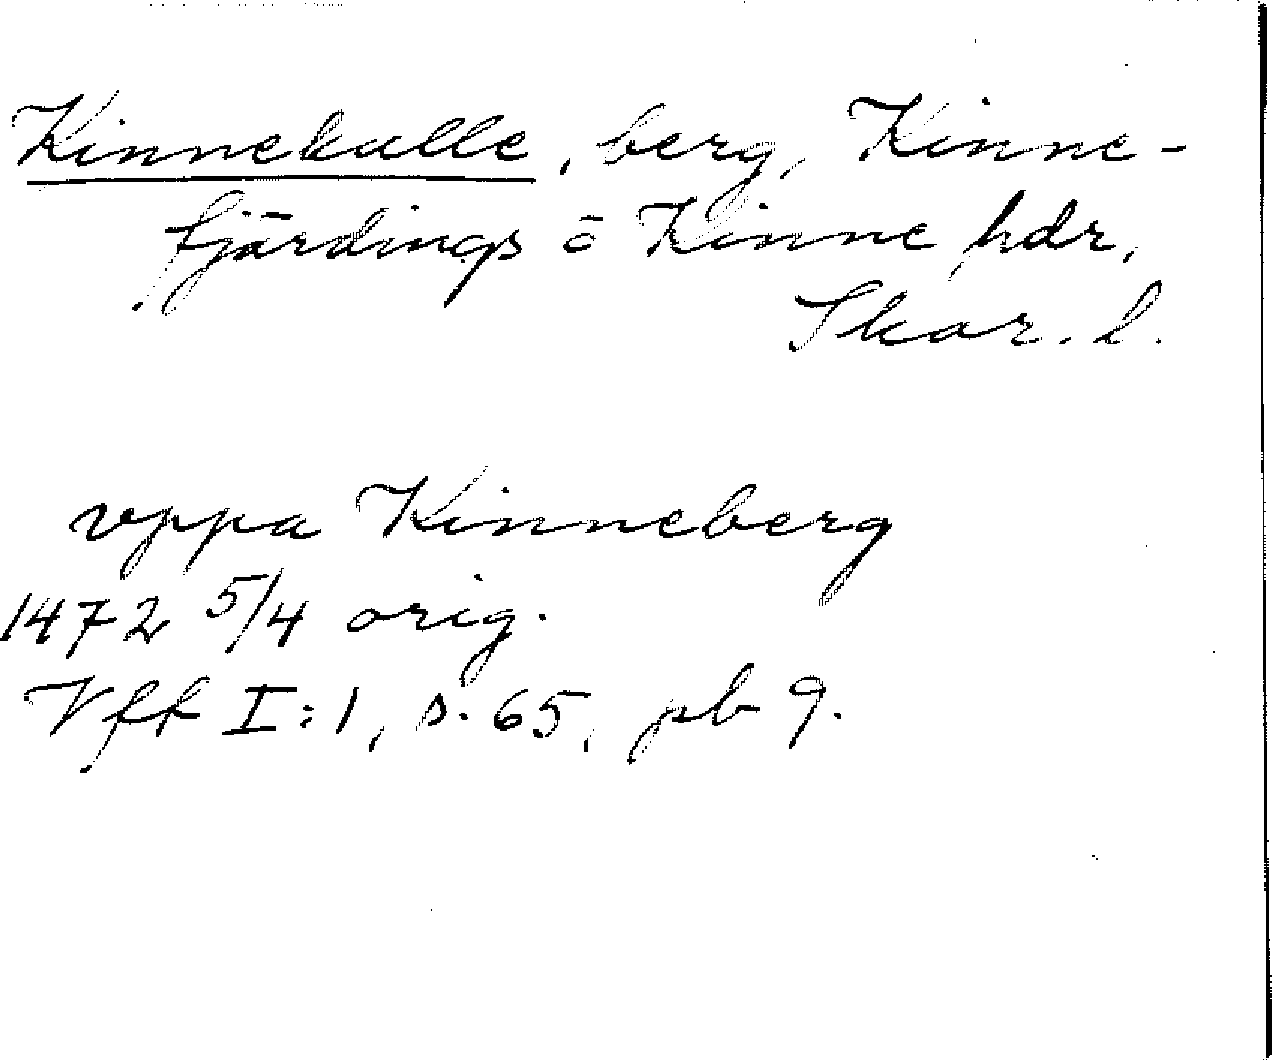 Kinnekulle, berg, Kinne-
fjärdings o Kinne hdr,
Skar. l.
vppa Kinneberg
1472 5/4 orig.
Vff I:1, s. 65, pb 9.